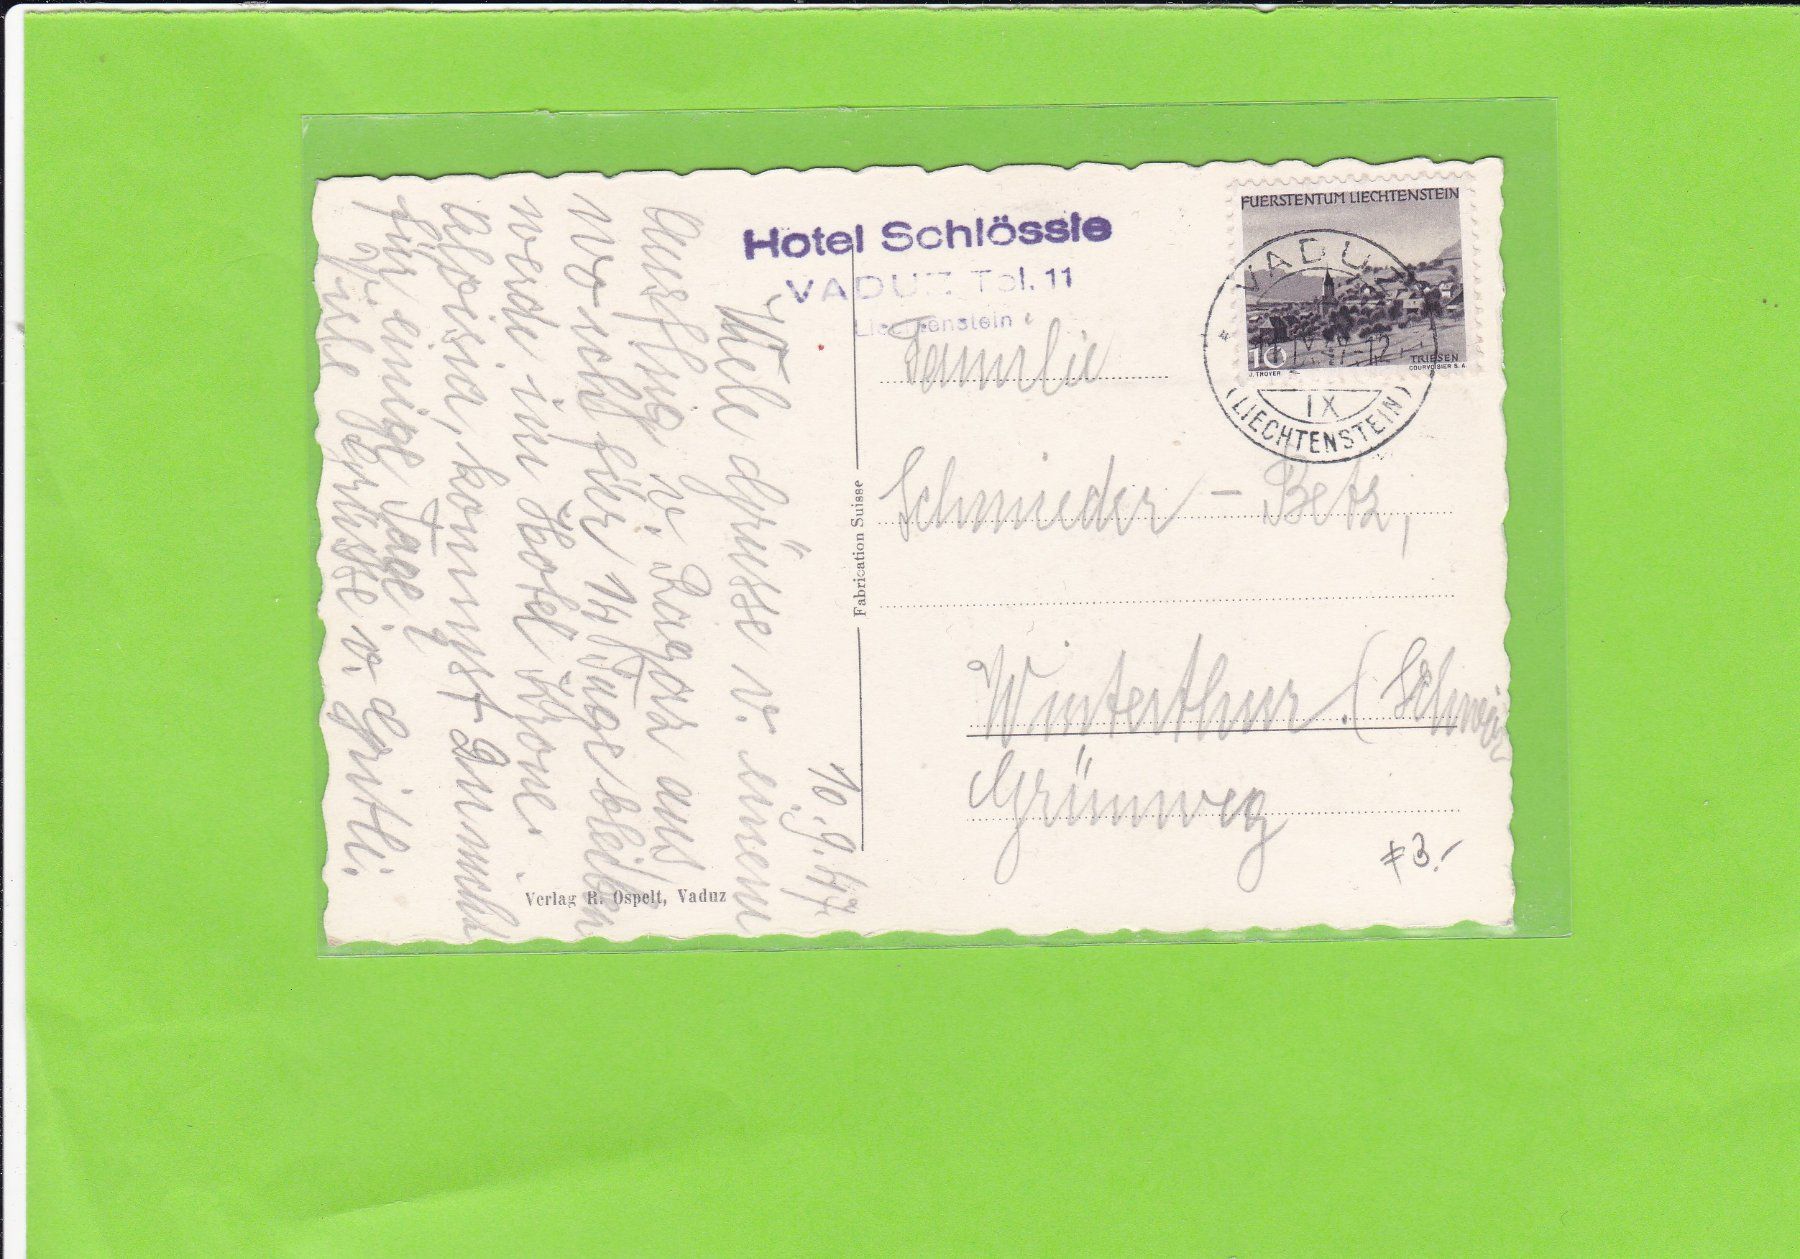 Hotel Schlössle
VADUZ Tel. 11
Liechtenstein
FUERSTENTUM LIECHTENSTEIN
10
TRIESEN
J. TROYER
COURVOISIER S. A.
VADUZ
IX
(LIECHTENSTEIN)
10.9.47
Viele Grüsse v. einem
Ausflug v. Ragaz aus
wo ich für 14 Tage bleiben
werde im Hotel Krone.
Aloisia, kommst Du nicht
für einige Tage?
Viele Grüsse v. Gritli.
Familie
Schmieder-Betz,
Winterthur. (Schweiz
Grünweg
Fabrication Suisse
Verlag R. Ospelt, Vaduz
3.-